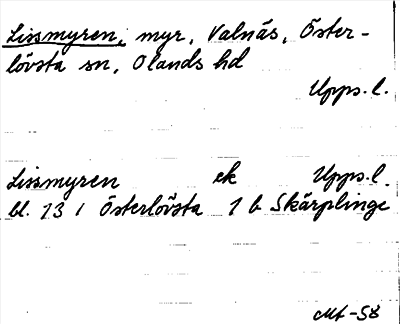 Lissmyren, myr, Valnäs, Öster-
lövsta sn, Olands hd
Upps.l.
Lissmyren ek Upps.l.
bl. 13 I Österlövsta 1 b Skärplinge
Mt-58